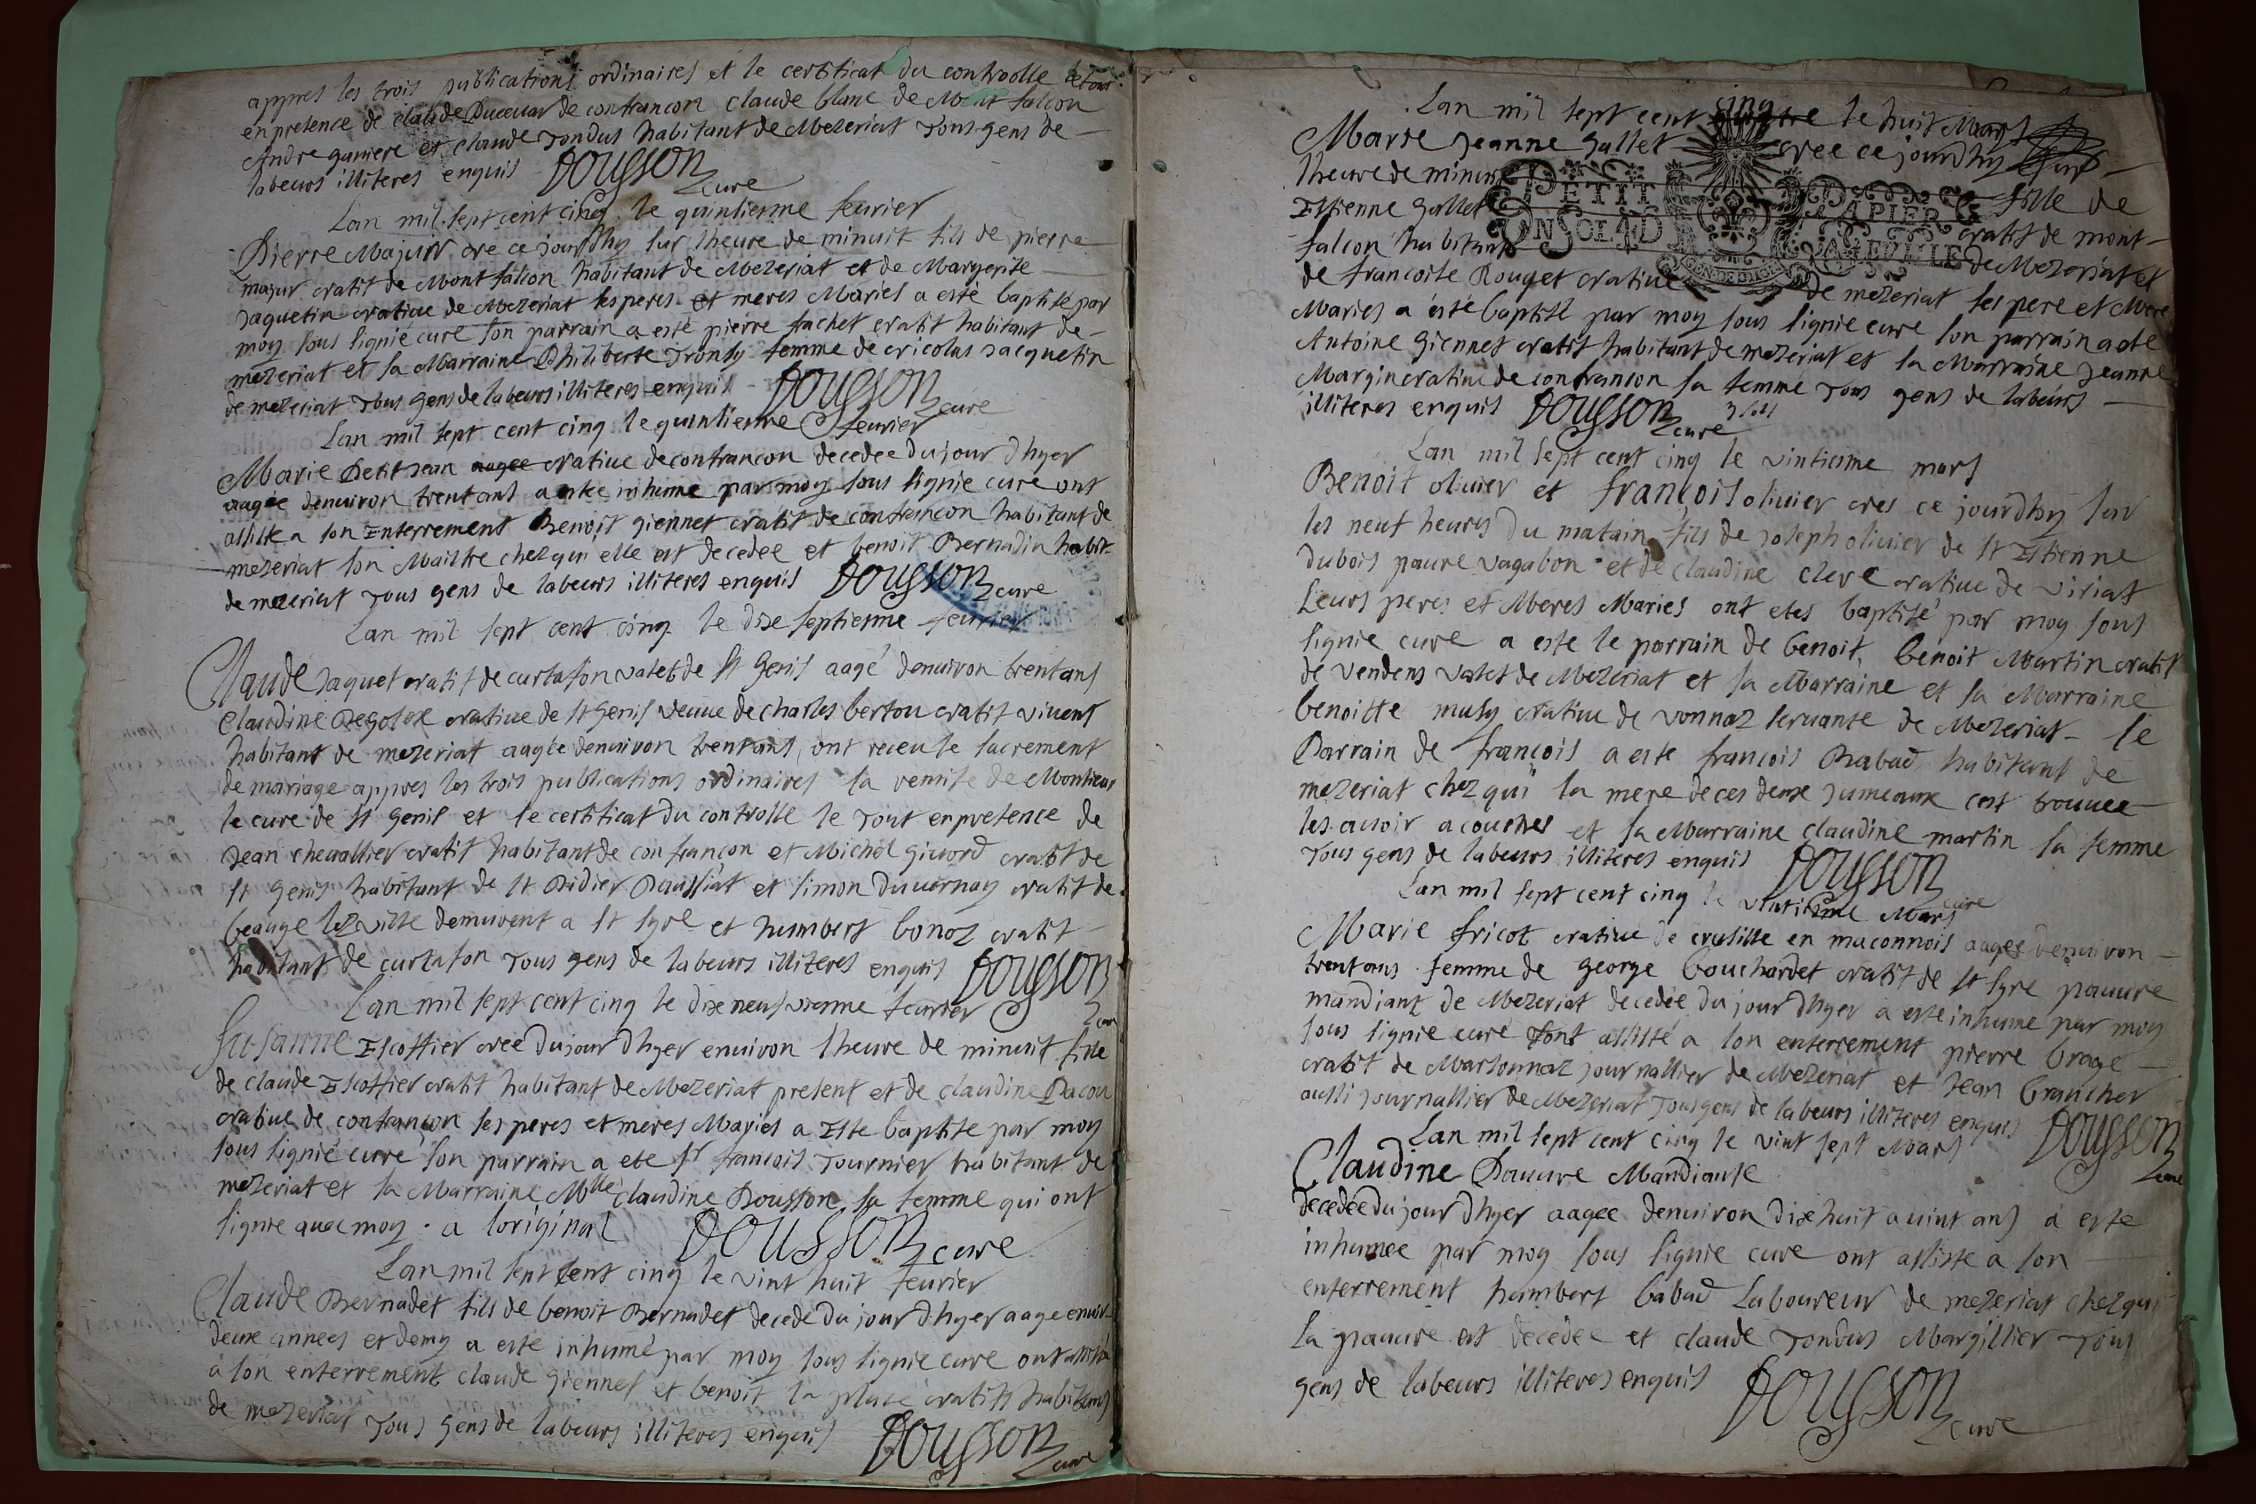 appres les trois publications ordinaires et le certificat du controolle le tout
en presence de claude Ducuar de confrancon claude blanc de Mont falcon
Andre ganiere et claude Tondus habitant de Mezeriat Tous gens de
labeurs illiteres enquis Dousson cure
Lan mil sept cent cinq le quinsiesme feurier
Pierre Majur ore ce jourdhuy sur lheure de minuit fils de pierre
majur oratif de Mont falcon habitant de Mezeriat et de Margerite
Jaquetin oratiue de Mezeriat ses peres et meres Mariés a esté baptisé par
moy sous signié curé son parrain a esté pierre fachet oratif habitant de
mezeriat et sa Marraine Philiberte Tronsy femme de nicolas Jacquetin
de mezeriat Tous gens de labeurs illiteres enquis Dousson cure
Lan mil sept cent cinq le quinsiesme feurier
Marie Petit Jean aagee oratiue de confrancon decedee du jour dhyer
aagée denuiron trent ans a este inhume par moy sous signie cure ont
assiste a son Enterrement Benoit giennet oratif de confrancon habitant de
mezeriat son Maistre chez qui elle est decedee et benoit Bernadin habit
de mezeriat Tous gens de labeurs illiteres enquis Dousson cure
Lan mil sept cent cinq le dixseptiesme feurier
Claude Jaquet oratif de curtafon valet de st genis aagé denuiron trent ans
claudine oratiue de st genis veuue de charles bertou oratif viuent
habitant de mezeriat aagée denuiron trent ans, ont receu le sacrement
de mariage appres les trois publications ordinaires la remise de Monsieur
le curé de st genis et le certificat du controlle le Tout en presence de
Jean cheuallier oratif habitant de confrancon et Michel giuord oratif de
st genis habitant de st Didier Daussiat et simon duuernay oratif de
beauge la ville demurent a st syre et humbert bonoz oratif
habitant de curtafon Tous gens de labeurs illiteres enquis Dousson
Lan mil sept cent cinq le dixneufuiesme feurier cure
Susanne Escoffier oree du jour dhyer enuiron lheure de minuit fille
de claude Escoffier oratif habitant de Mezeriat present et de claudine Dacou
oratiue de confrancon ses peres et meres Mariés a Este baptise par moy
sous signié curé son parrain a ete sr francois Tournier habitant de
mezeriat et sa Marraine Mlle claudine Dousson sa femme qui ont
signie auec moy . a loriginal Dousson cure
Lan mil sept cent cinq le vint huit feurier
Claude Bernadet fils de benoit Bernadet decede du jour dhyer aage enuir
deux annees et demy a este inhumé par moy sous signie cure ont assisté
a son enterrement claude giennet et benoit la place oratifs habitans
de mezeriat Tous gens de labeurs illiteres enquis Dousson cure
Lan mil sept cent cinq le huit Mars
Marie Jeanne gallet oree ce jourdhuy sur
lheure de minuit fille de
Estienne gallet oratif de mont
falcon habitant de Mezeriat et
de francoise Rouget oratiue de mezeriat ses pere et Mere
Mariés a esté baptisé par moy sous signie cure son parrain a ete
Antoine giennet oratif habitant de mezeriat et sa Marraine Jeanne
Margin oratiue de confrancon sa femme Tous gens de labeurs
illiteres enquis Dousson cure
PETIT PAPIER
Lan mil sept cent cinq le vintiesme mars
Benoit oliuier et francois oliuier ores ce jourdhuy sur
les neuf heures du matain fils de Joseph oliuier de st Estienne
dubois pauure vagabon et de claudine clere oratiue de viriat
Leurs peres et Meres Mariés ont etes baptisé par moy sous
signie cure a este le parrain de benoit, benoit Martin oratif
de vendens valet de Mezeriat et sa Marraine et sa Marraine
benoitte musy oratiue de vonnaz seruante de Mezeriat le
Parrain de francois a este francois Rabad habitant de
mezeriat chez qui la mere de ces deux Jumeaux cest trouuee
les auoir acouches et sa Marraine claudine martin sa femme
Tous gens de labeurs illiteres enquis Dousson
Lan mil sept cent cinq le vintiesme Mars cure
Marie fricot oratiue de crusille en maconnois aagee denuiron
trent ans femme de george bouchardet oratif de st syre pauure
mandiant de Mezeriat decedée du jour dhyer a este inhume par moy
sous signie curé sont assisté a son enterrement pierre brage
oratif de Marsonnaz journallier de Mezeriat et Jean brancher
aussi journallier de Mezeriat Tous gens de labeurs illiteres enquis Dousson
Lan mil sept cent cinq le vint sept Mars cure
Claudine Pauure Mandiante
decedée du jour dhyer aagee denuiron dixhuit a vint ans a este
inhumee par moy sous signie cure ont assiste a son
enterrement humbert babad Laboureur de mezeriat chez qui
la pauure est decedée et claude Tondus Margillier Tous
gens de labeurs illiteres enquis Dousson cure